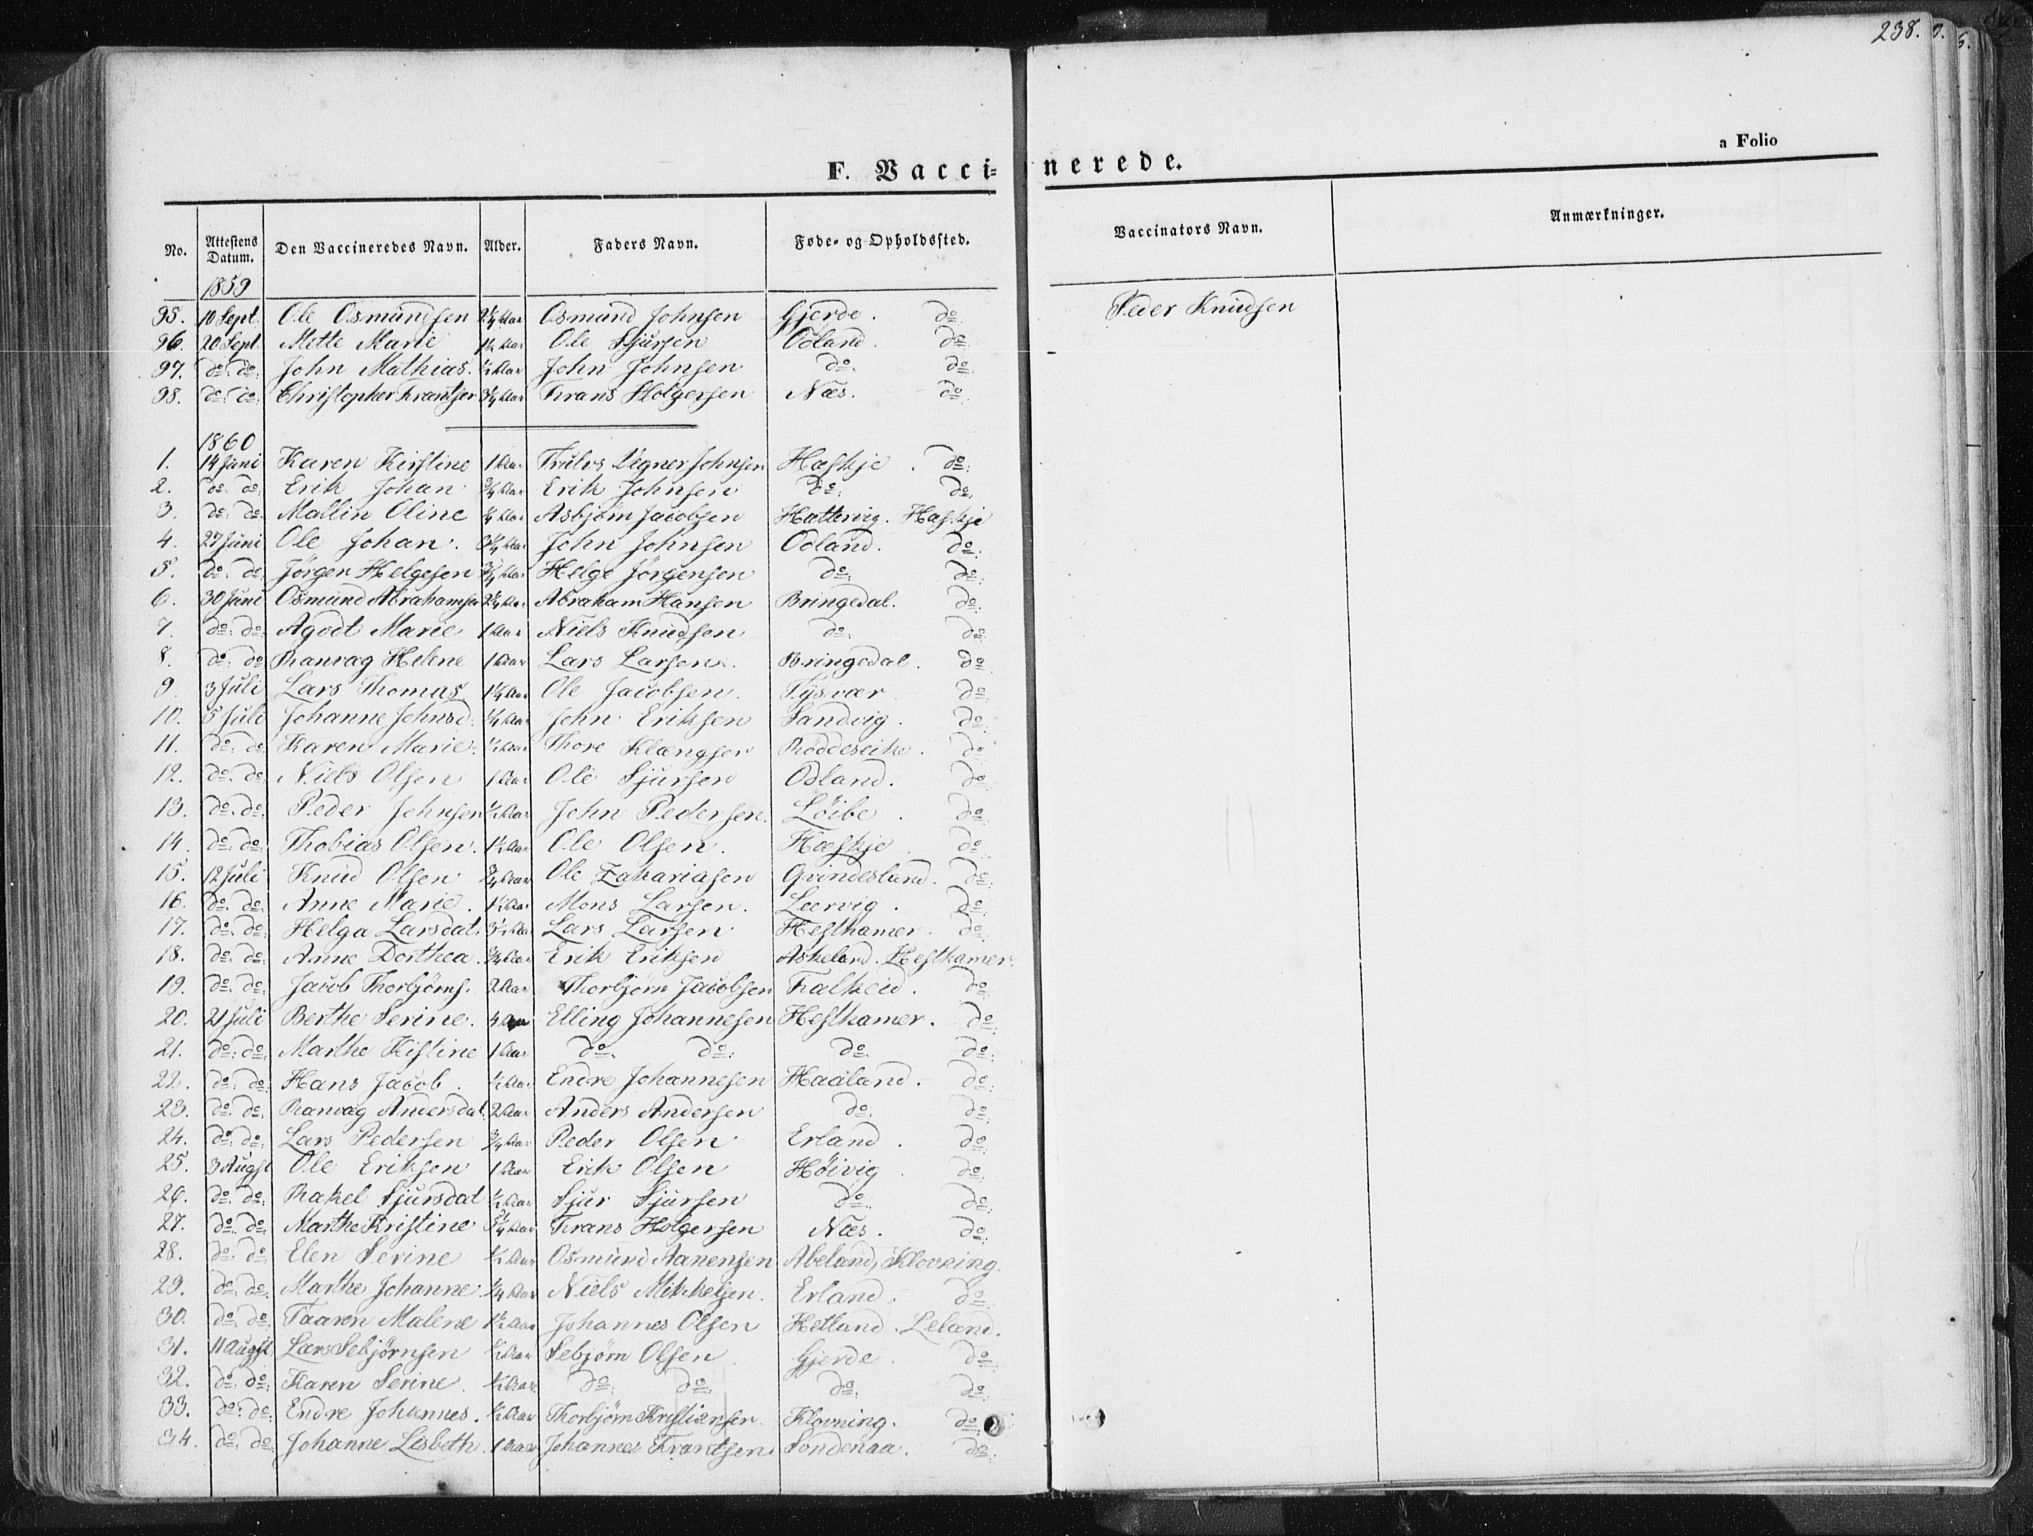 238.
a Folio
F. Vaccinerede.
No. Attestens Datum. Den Vaccineredes Navn. Alder. Faders Navn. Føde- og Opholdssted. Vaccinators Navn. Anmærkninger.
1859
95. 10 Sept. Ole Osmundsen 2¼ Aar Osmund Johnsen Gjerde. do Peder Knudsen
96. 20 Sept Mette Marie Aar Ole Sjursen Odland. do
97. do. do. John Mathias. ½ Aar John Johnsen do. do
98. do. do. Christopher Frantsen 3¼ Aar Frans Holgersen Næs. do
1860
1. 14 Juni Karen Kirstine 1 Aar Trulvs Vegner Johnsen Hæskje. do.
2. do. do. Erik Johan ¾ Aar Erik Johnsen do. do.
3. do. do. Mallin Oline Aar Asbjørn Jacobsen Hattevig. Hæskje
4. 27 Juni Ole Johan. Aar John Johnsen Odland. do.
5. do. do. Jørgen Helgesen Aar Helge Jørgensen do. do.
6. 30 Juni Osmund Abrahamsen 2¼ Aar Abraham Hansen Bringedal. do.
7. do. do. Agodt Marie 1 Aar Niels Knudsen do. do.
8. do. do Ranvag Helene 1 Aar Lars Larsen. Bringedal. do
9. 3 Juli Lars Thomas 1¼ Aar Ole Jacobsen. Tysvær do.
10. 5 Juli Johanne Johnsd. Aar John Eriksen Sandvig. do.
11. do. do Karen Marie. ½ Aar Thore Klængsen Røddeseike. do
12. do. do. Niels Olsen 1 Aar Ole Sjursen Odland. do.
13. do. do. Peder Johnsen ½ Aar John Pedersen. Løibe. do
14. do. do. Thobias Olsen. 1½ Aar Ole Olsen. Hæskje. do.
15. 12 Juli Knud Olsen ¾ Aar Ole Zakariasen Qvindesland. do.
16. do. do. Anne Marie. 1½ Aar Mons Larsen. Lærvig. do.
17. do. do. Helga Larsdat. 3½ Aar Lars Larsen Hesthamer. do.
18. do. do. Anne Dorthea. ¾ Aar Erik Eriksen Askeland. Hesthamer.
19. do. do. Jacob Thorbjørns. 2 Aar Thorbjørn Jacobsen Falkeid. do.
20. 21 Juli Berthe Serine. 4 Aar Elling Johannesen Hesthamer. do.
21. do. do. Marthe Kistine 1 Aar do. do. do. do.
22. do. do. Hans Jacob. ½ Aar Endre Johannesen Haaland. do.
23. do. do. Ranvag Andersdat. 2 Aar Anders Andersen do. do.
24. do. do. Lars Pedersen ¾ Aar Peder Olsen Erland. do.
25. 3 Augst Ole Eriksen 1 Aar Erik Olsen Høivig. do.
26. do. do. Rakel Sjursdat ½ Aar Sjur Sjursen do. do.
27. do. do. Marthe Kristine Aar Frans Holgersen Næs. do.
28. do. do Elen Serine ½ Aar Osmund Aanensen Abeland, Klovning.
29. do. do. Marthe Johanne. ¼ Aar Niels Mikkelsen. Erland. do.
30. do. do. Taaren Malene 1½ Aar Johannes Olsen Hetland. Leland.
31. 11 Augst Lars Sebjørnsen ½ Aar Sebjørn Olsen Gjerde. do.
32. do. do. Karen Serine. ½ Aar do. do. do. do.
33. do. do. Endre Johannes. ½ Aar Thorbjørn Kristiansen. Klovning. do.
34. do. do. Johanne Lisbeth. 1 Aar Johannes Frantsen Søndenaa. do.